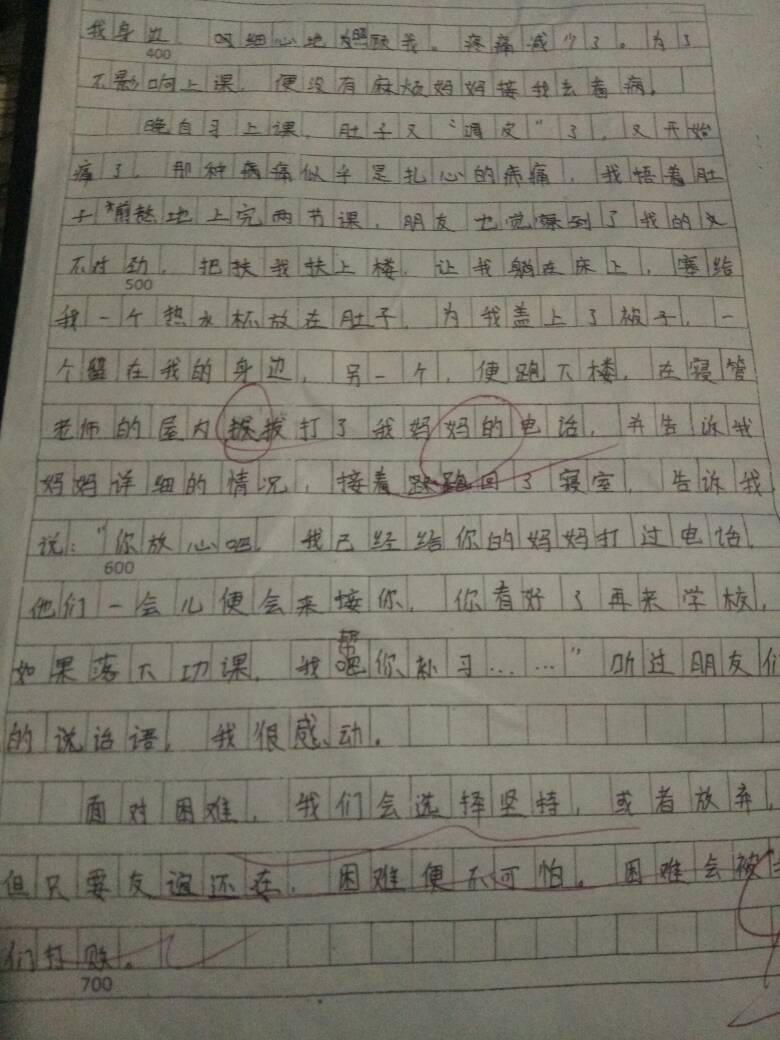 我身边 细心地照顾我。疼痛减少了。为了
400
不影响上课，便没有麻烦妈妈接我去看病。
晚自习上课，肚子又“调皮”了，又开始
痛了，那种病痛似乎是扎心的疼痛，我捂着肚
子煎熬地上完两节课，朋友也觉察到了我的又
不对劲，把扶我扶上楼，让我躺在床上，塞给
500
我一个热水杯放在肚子，为我盖上了被子，一
个留在我的身边，另一个，便跑下楼，在寝管
老师的屋内拨打了我妈妈的电话，并告诉我
妈妈详细的情况，接着跑回了寝室，告诉我
说：“你放心吧，我已经给你的妈妈打过电话，
600
他们一会儿便会来接你，你看好了再来学校，
帮
如果落下功课，我吧你补习……”听过朋友们
的说话语，我很感动。
面对困难，我们会选择坚持，或者放弃，
但只要友谊还在，困难便不可怕。困难会被
们打败。
700